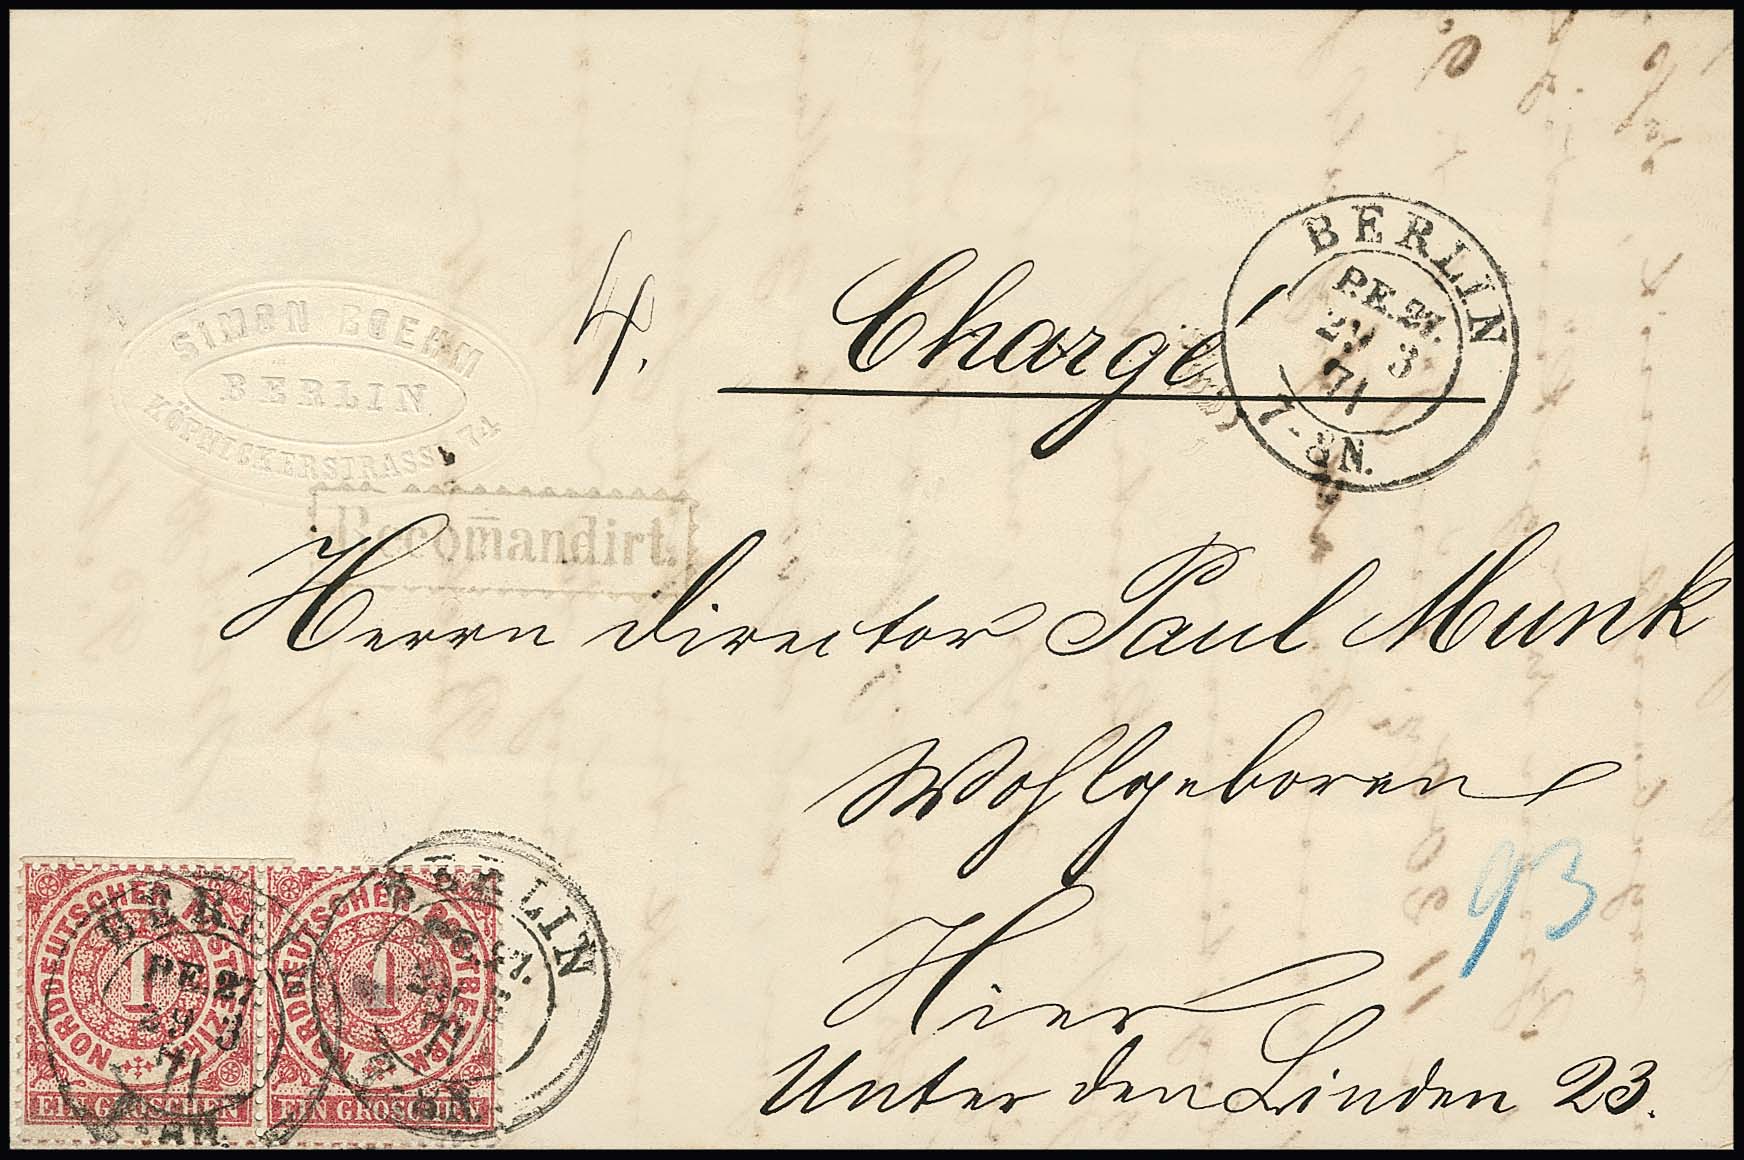 BERLIN
P.E.27.
29 3
71
7-8N.
4.
Chargé
SIMON BOEHM
BERLIN
KÖPNICKERSTRASSE 74
Recom̄andirt.
Herrn Director Paul Munk
Wohlgeboren
93
Hier
Unter den Linden 23.
NORDDEUTSCHER POSTBEZIRK
1
EIN GROSCHEN
NORDDEUTSCHER POSTBEZIRK
1
EIN GROSCHEN
BERLIN
P.E.27.
29 3
71
BERLIN
71